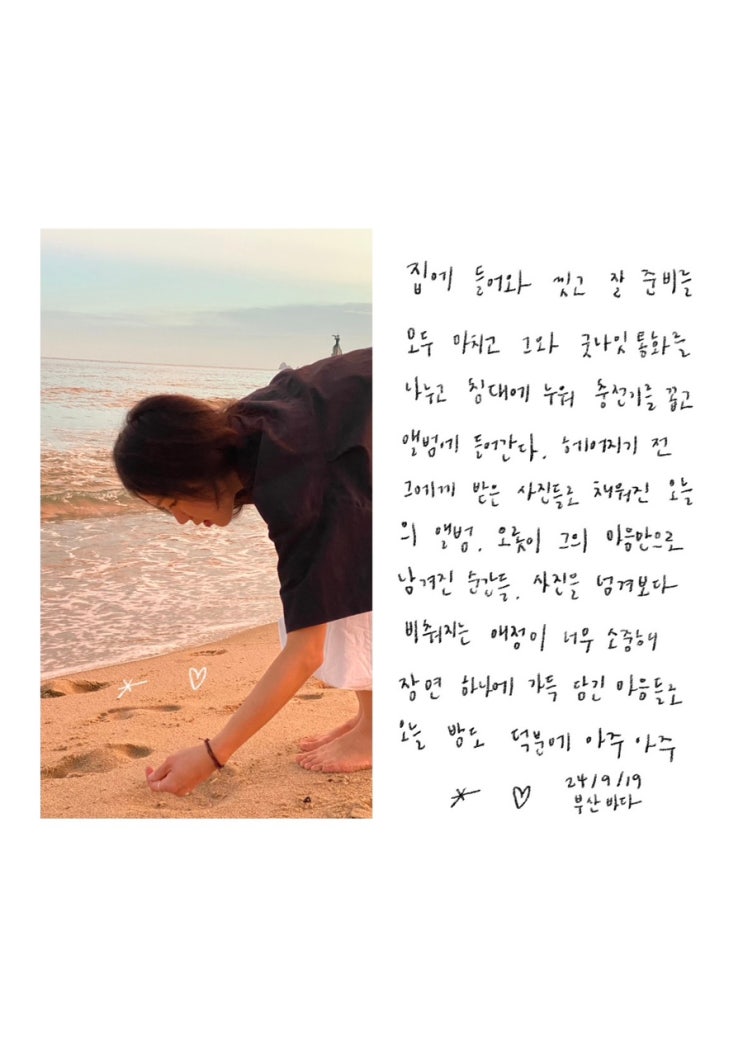 집에 들어와 씻고 잘 준비를
모두 마치고 그와 굿나잇 통화를
나누고 침대에 누워 충전기를 꼽고
앨범에 들어간다. 헤어지기 전
그에게 받은 사진들로 채워진 오늘
의 앨범. 오롯이 그의 마음만으로
남겨진 순간들. 사진을 넘겨보다
비춰지는 애정이 너무 소중해
장면 하나에 가득 담긴 마음들로
오늘 밤도 덕분에 아주 아주
24/9/19
부산 바다